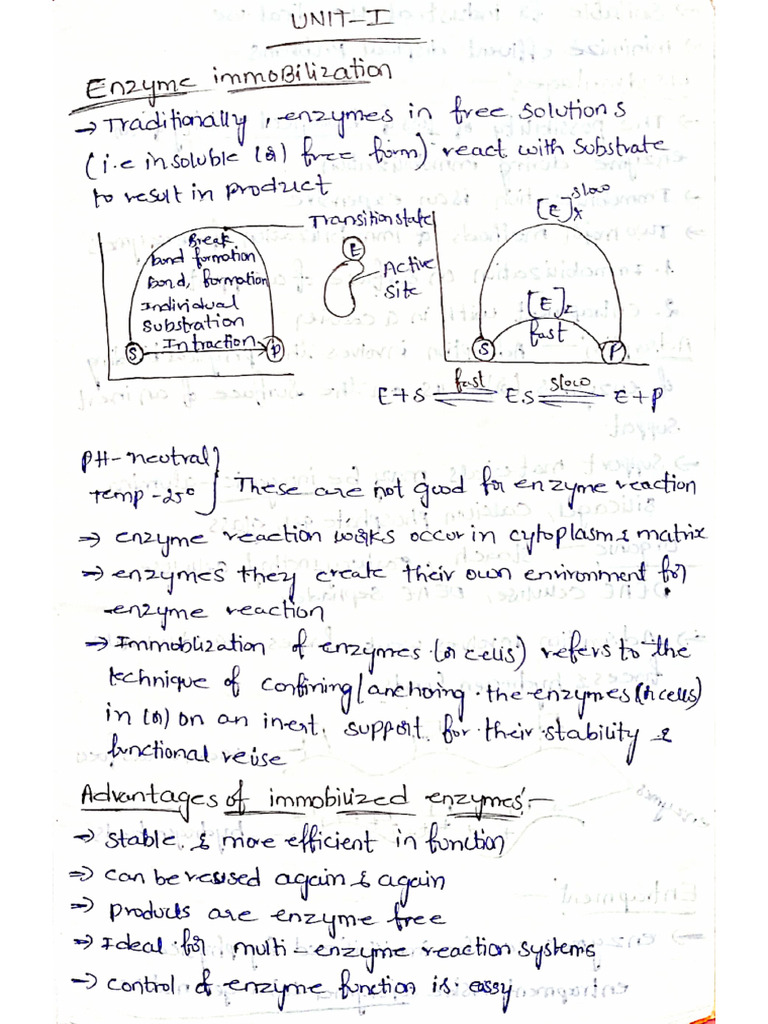 UNIT-I
Enzyme immobilization
→ Traditionally, enzymes in free solutions
(i.e insoluble (or) free form) react with substrate
to result in product
Transition state
Break
bond formation
Bond, formation
Individual
Substration
Intraction
S
P
E
Active
site
[E]x slow
[E]z
fast
S
P
E+S fast E.S slow E+P
PH-neutral
Temp-25°
These are not good for enzyme reaction
→ enzyme reaction works occur in cytoplasm & matrix
→ enzymes they create their own environment for
enzyme reaction
→ Immoblization of enzymes (or cells) refers to the
technique of confining/anchoring the enzymes (or cells)
in (or) on an inert support for their stability &
functional reuse
Advantages of immobilized enzymes:-
→ stable & more efficient in function
→ can be reused again & again
→ products are enzyme free
→ Ideal for multi-enzyme reaction systems
→ control of enzyme function is easy